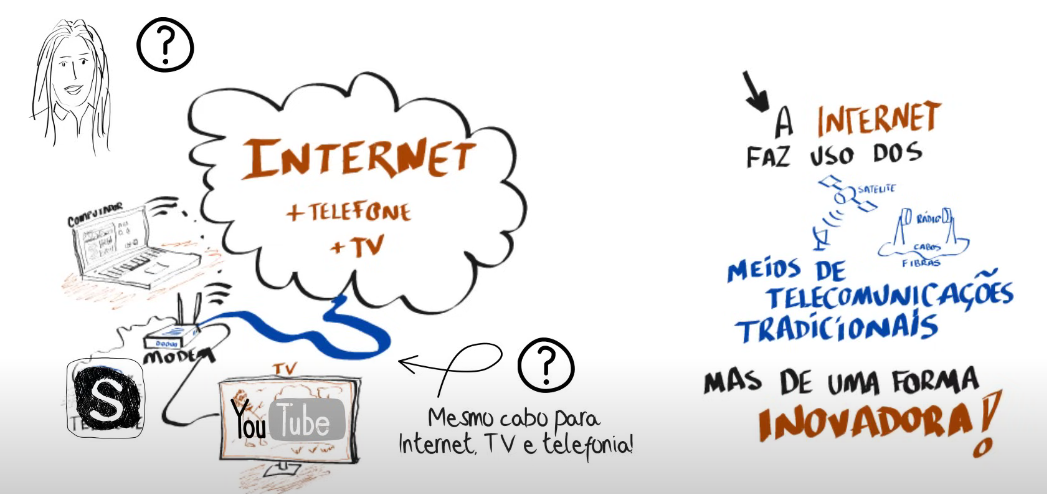 ?
INTERNET
+ TELEFONE
+ TV
COMPUTADOR
MODEM
S
TV
YouTube
?
Mesmo cabo para
Internet, TV e telefonia!
A INTERNET
FAZ USO DOS
SATELITE
RÁDIO
CABOS
FIBRAS
MEIOS DE
TELECOMUNICAÇÕES
TRADICIONAIS
MAS DE UMA FORMA
INOVADORA!